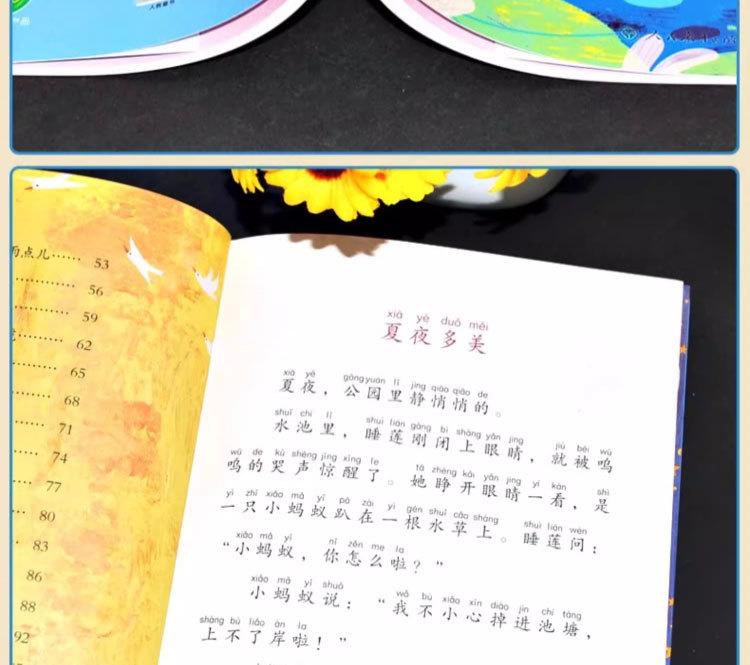 人民教育
雨点儿…… 53
56
59
62
65
68
71
74
77
80
83
86
88
92
xià yè duō měi
夏夜多美
xià yè gōng yuán lǐ jìng qiāo qiāo de
夏夜，公园里静悄悄的。
shuǐ chí lǐ shuì lián gāng bì shàng yǎn jing jiù bèi wū
水池里，睡莲刚闭上眼睛，就被呜
wū de kū shēng jīng xǐng le tā zhēng kāi yǎn jing yí kàn shì
呜的哭声惊醒了。她睁开眼睛一看，是
yì zhī xiǎo mǎ yǐ pā zài yì gēn shuǐ cǎo shàng shuì lián wèn
一只小蚂蚁趴在一根水草上。睡莲问：
xiǎo mǎ yǐ nǐ zěn me la
“小蚂蚁，你怎么啦？”
xiǎo mǎ yǐ shuō wǒ bù xiǎo xīn diào jìn chí táng
小蚂蚁说：“我不小心掉进池塘，
shàng bù liǎo àn la
上不了岸啦！”